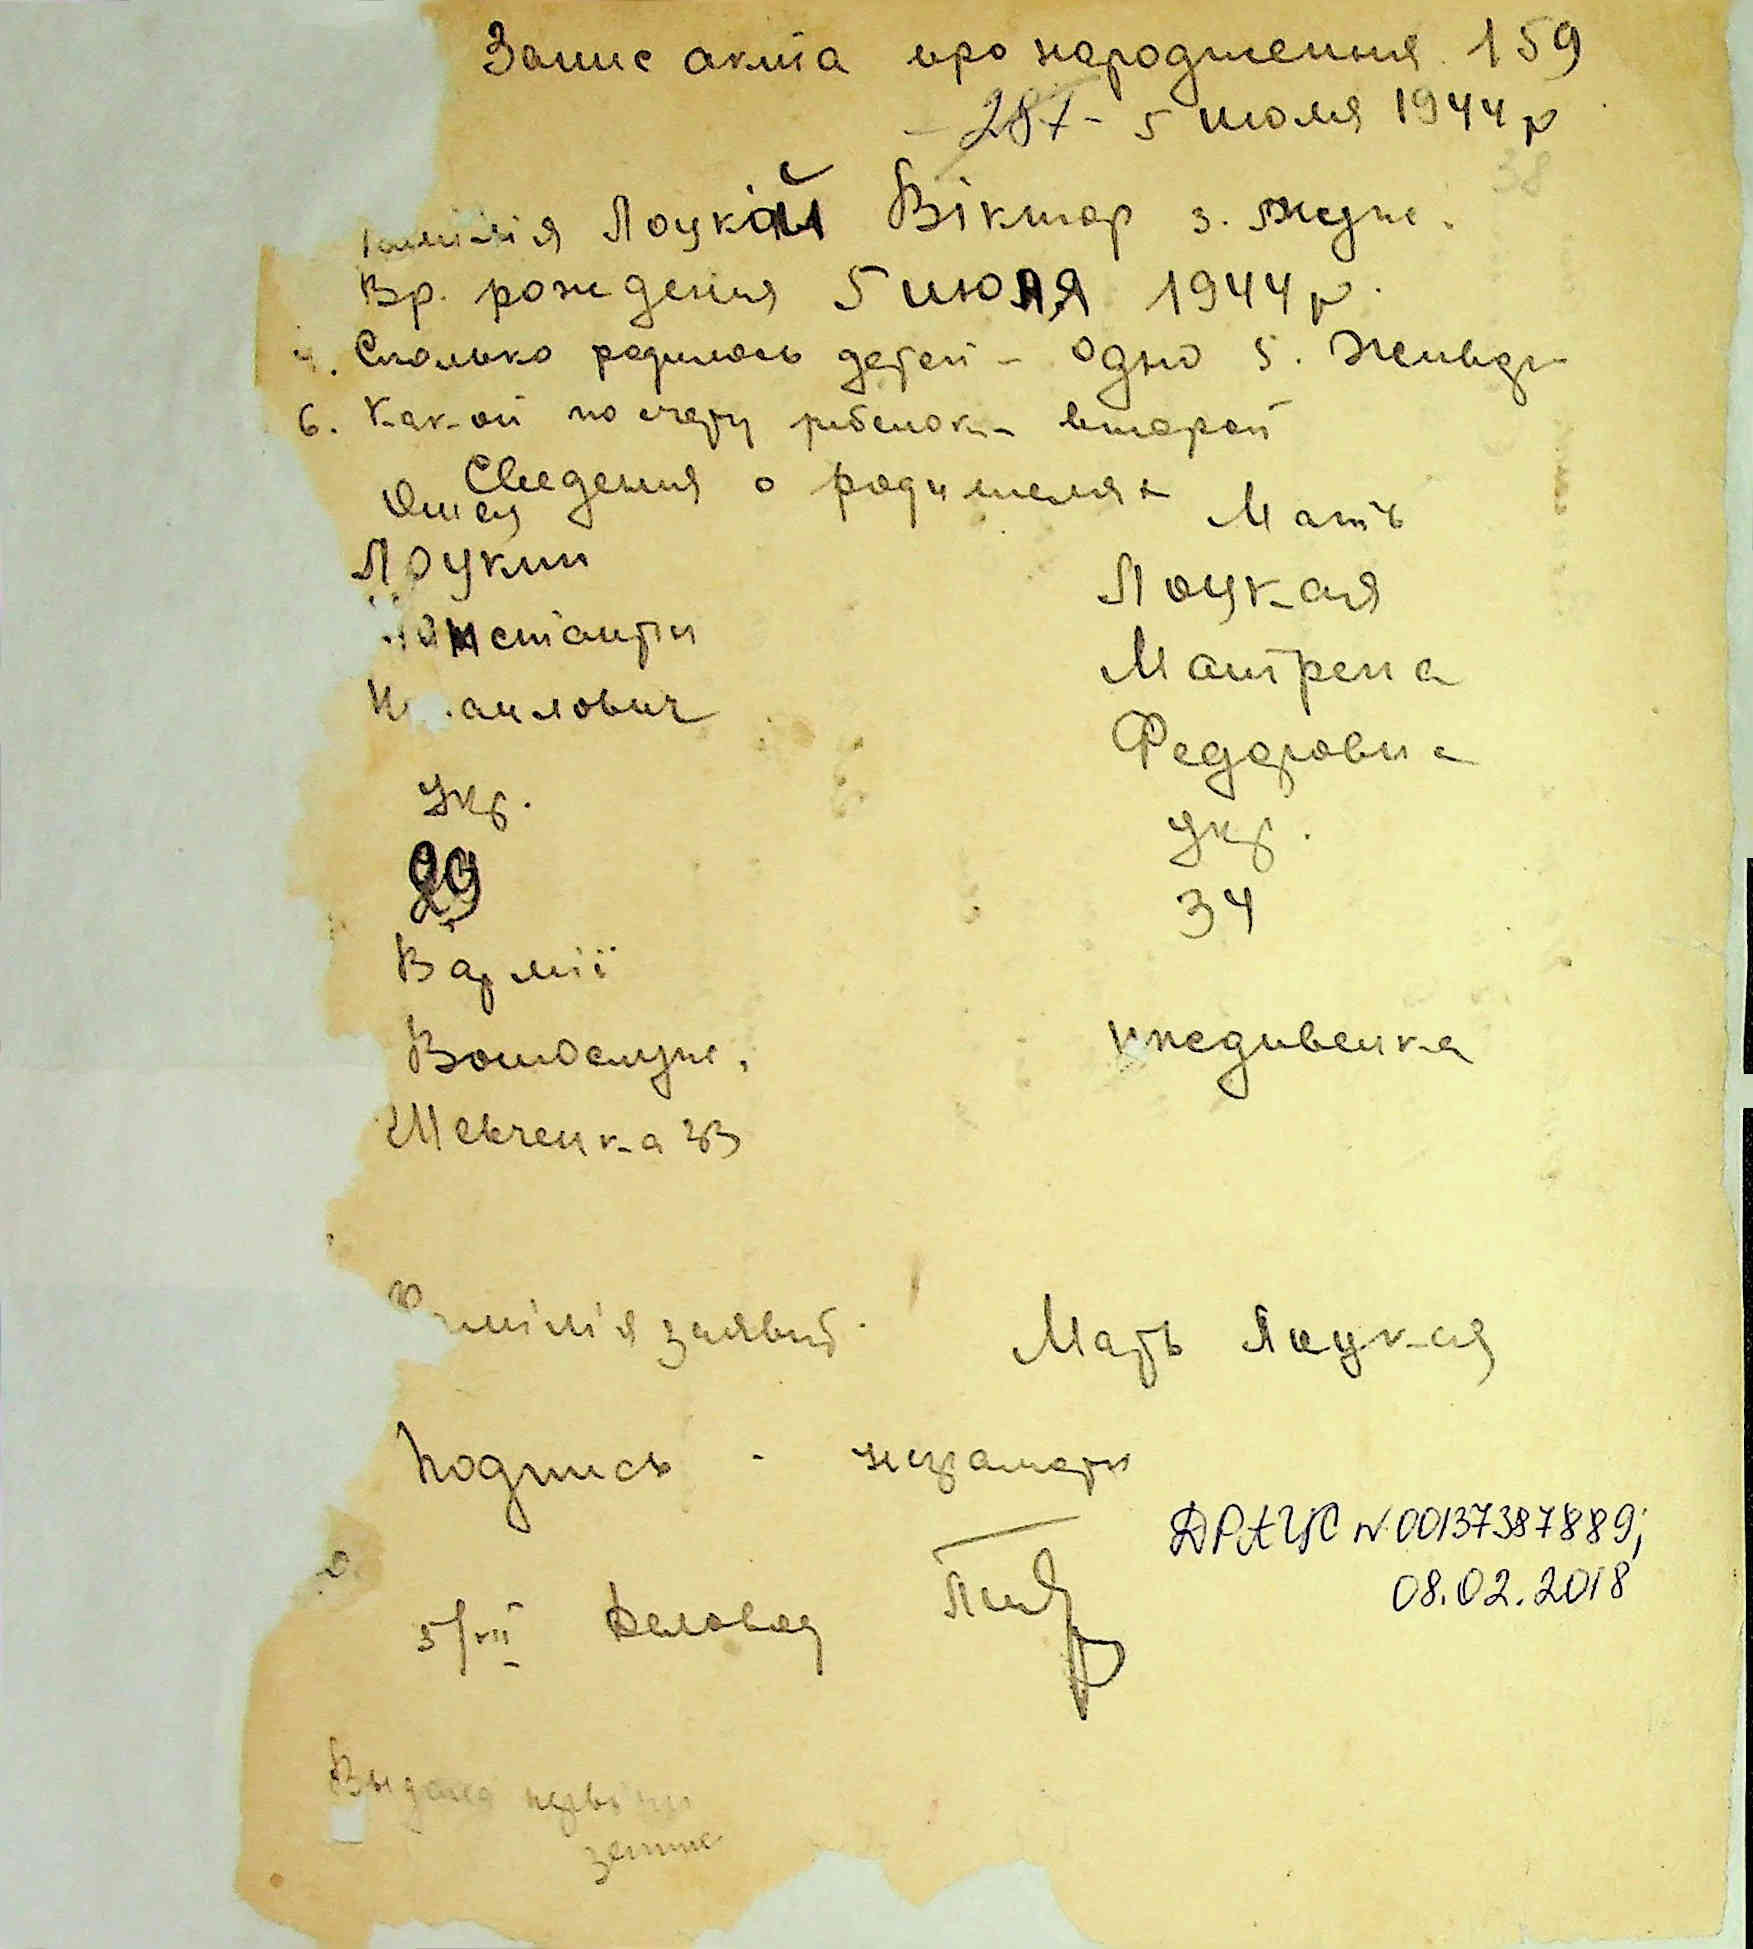 Запис акта про народження 159
- 287 - 5 июля 1944 р
Лоукий Віктор
Вр. рождения 5 июля 1944 р.
4. Сколько родилось детей - одно 5.
6. Какой по счету ребенок - второй
Сведения о родителях
Отец Мать
Лоукий Лоукая
Константин Матрена
аилович Федоровна
Укр. Укр.
29 34
В армії
иждивенка
Шевченка 33
Фамілія заявит. Мать Лоукая
Подпись - неграмотн
ДРАЦС № 00137387889;
08.02.2018
5/VII Деловод
Выдано